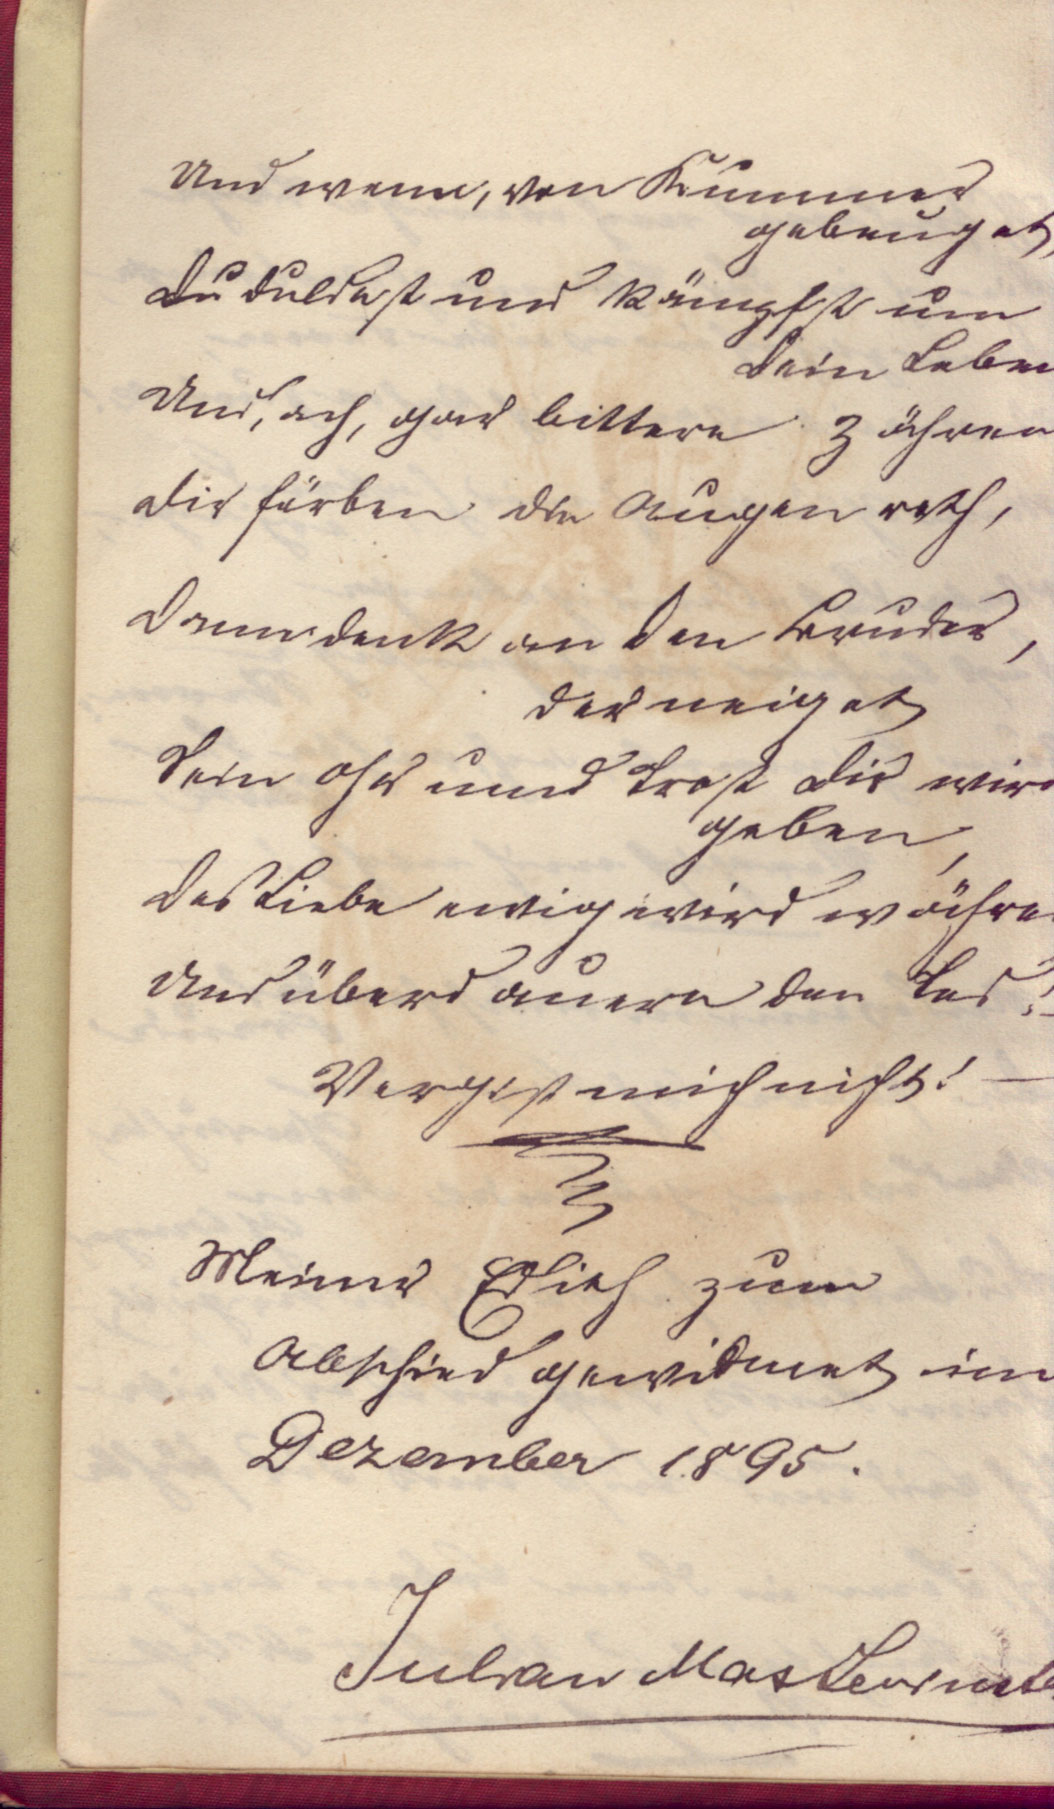 Und wenn, von Kummer
gebeuget,
Du duldest und kämpfst um
Dein Leben
Und, ach, gar bittere Zähren
Dir färben die Augen roth,
Dann denk an den Bruder,
der neiget
Sein Ohr und Trost Dir wird
geben,
Deß Liebe ewig wird währe
Und überdauern den Tod!
Vergißmeinnicht! —
Meiner Edith zum
Abschied gewidmet im
Dezember 1895.
Julian Max